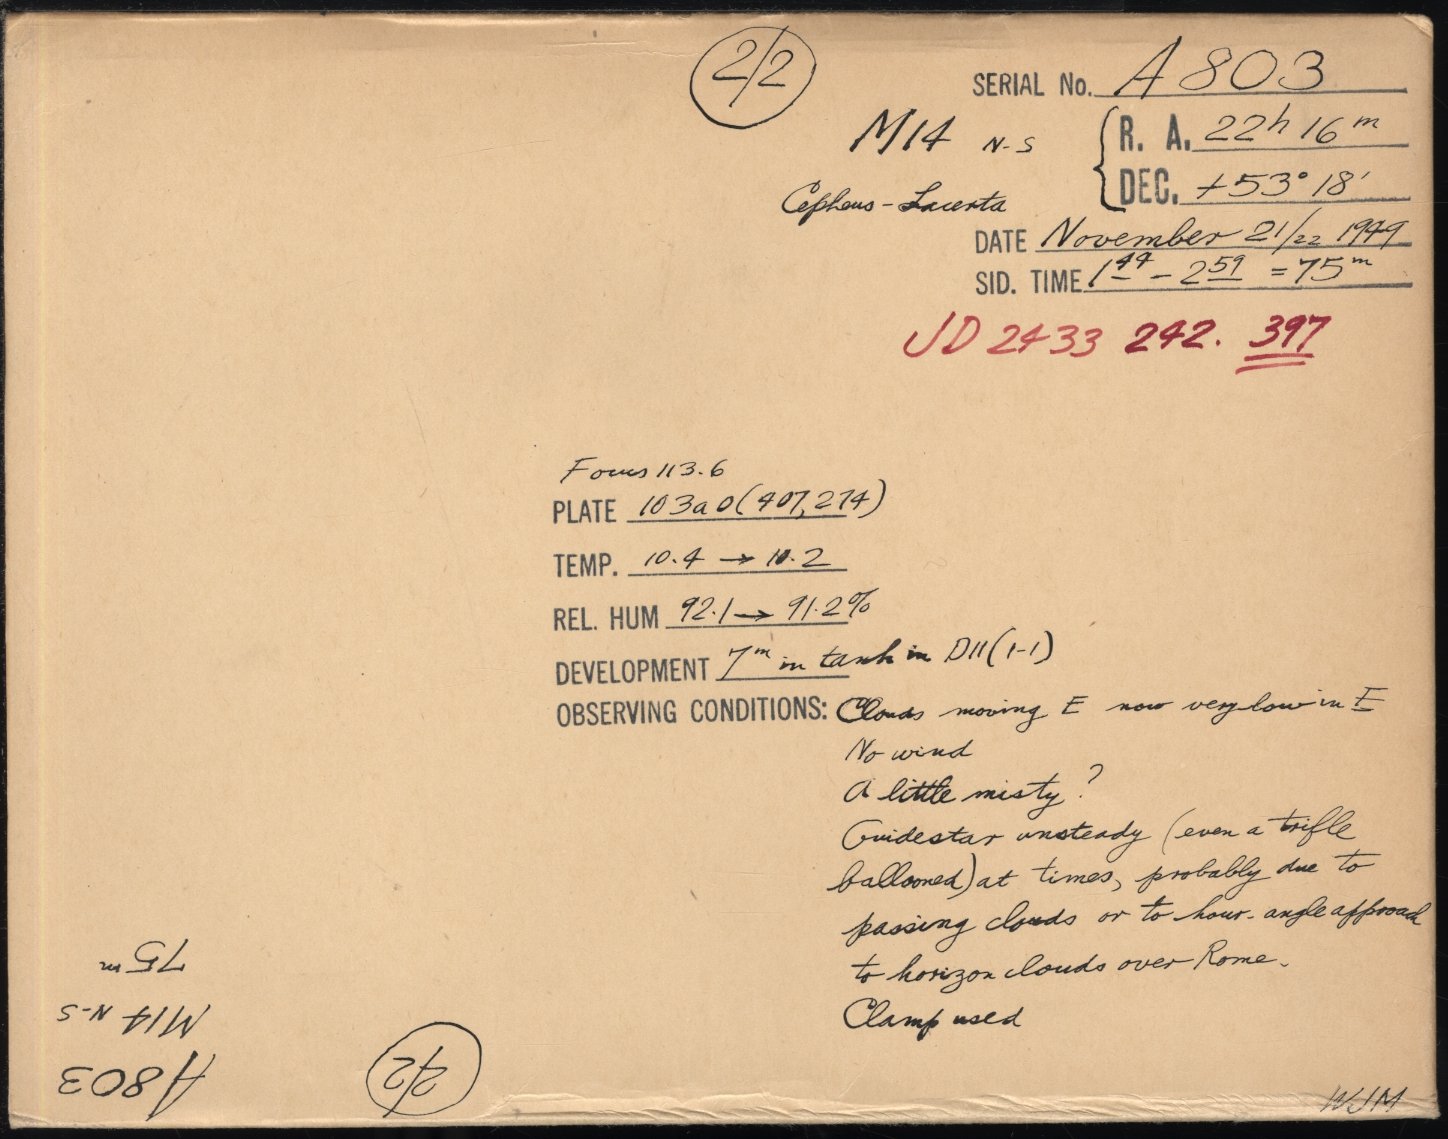 2/2
SERIAL No. A803
M14 N-S
R. A. 22h 16m
DEC. +53° 18'
Cepheus - Lacerta
DATE November 21/22 1949
SID. TIME 1 44 - 2 59 = 75m
JD 2433 242. 397
Focus 113.6
PLATE 103aO (407,274)
TEMP. 10.4 → 10.2
REL. HUM 92.1 → 91.2%
DEVELOPMENT 7m in tank in D11 (1-1)
OBSERVING CONDITIONS: Clouds moving E now very low in E
No wind
A little misty?
Guidestar unsteady (even a trifle
ballooned) at times, probably due to
passing clouds or to hour-angle approach
to horizon clouds over Rome.
Clamp used
75m
M14 N-S
A803
2/2
WJM